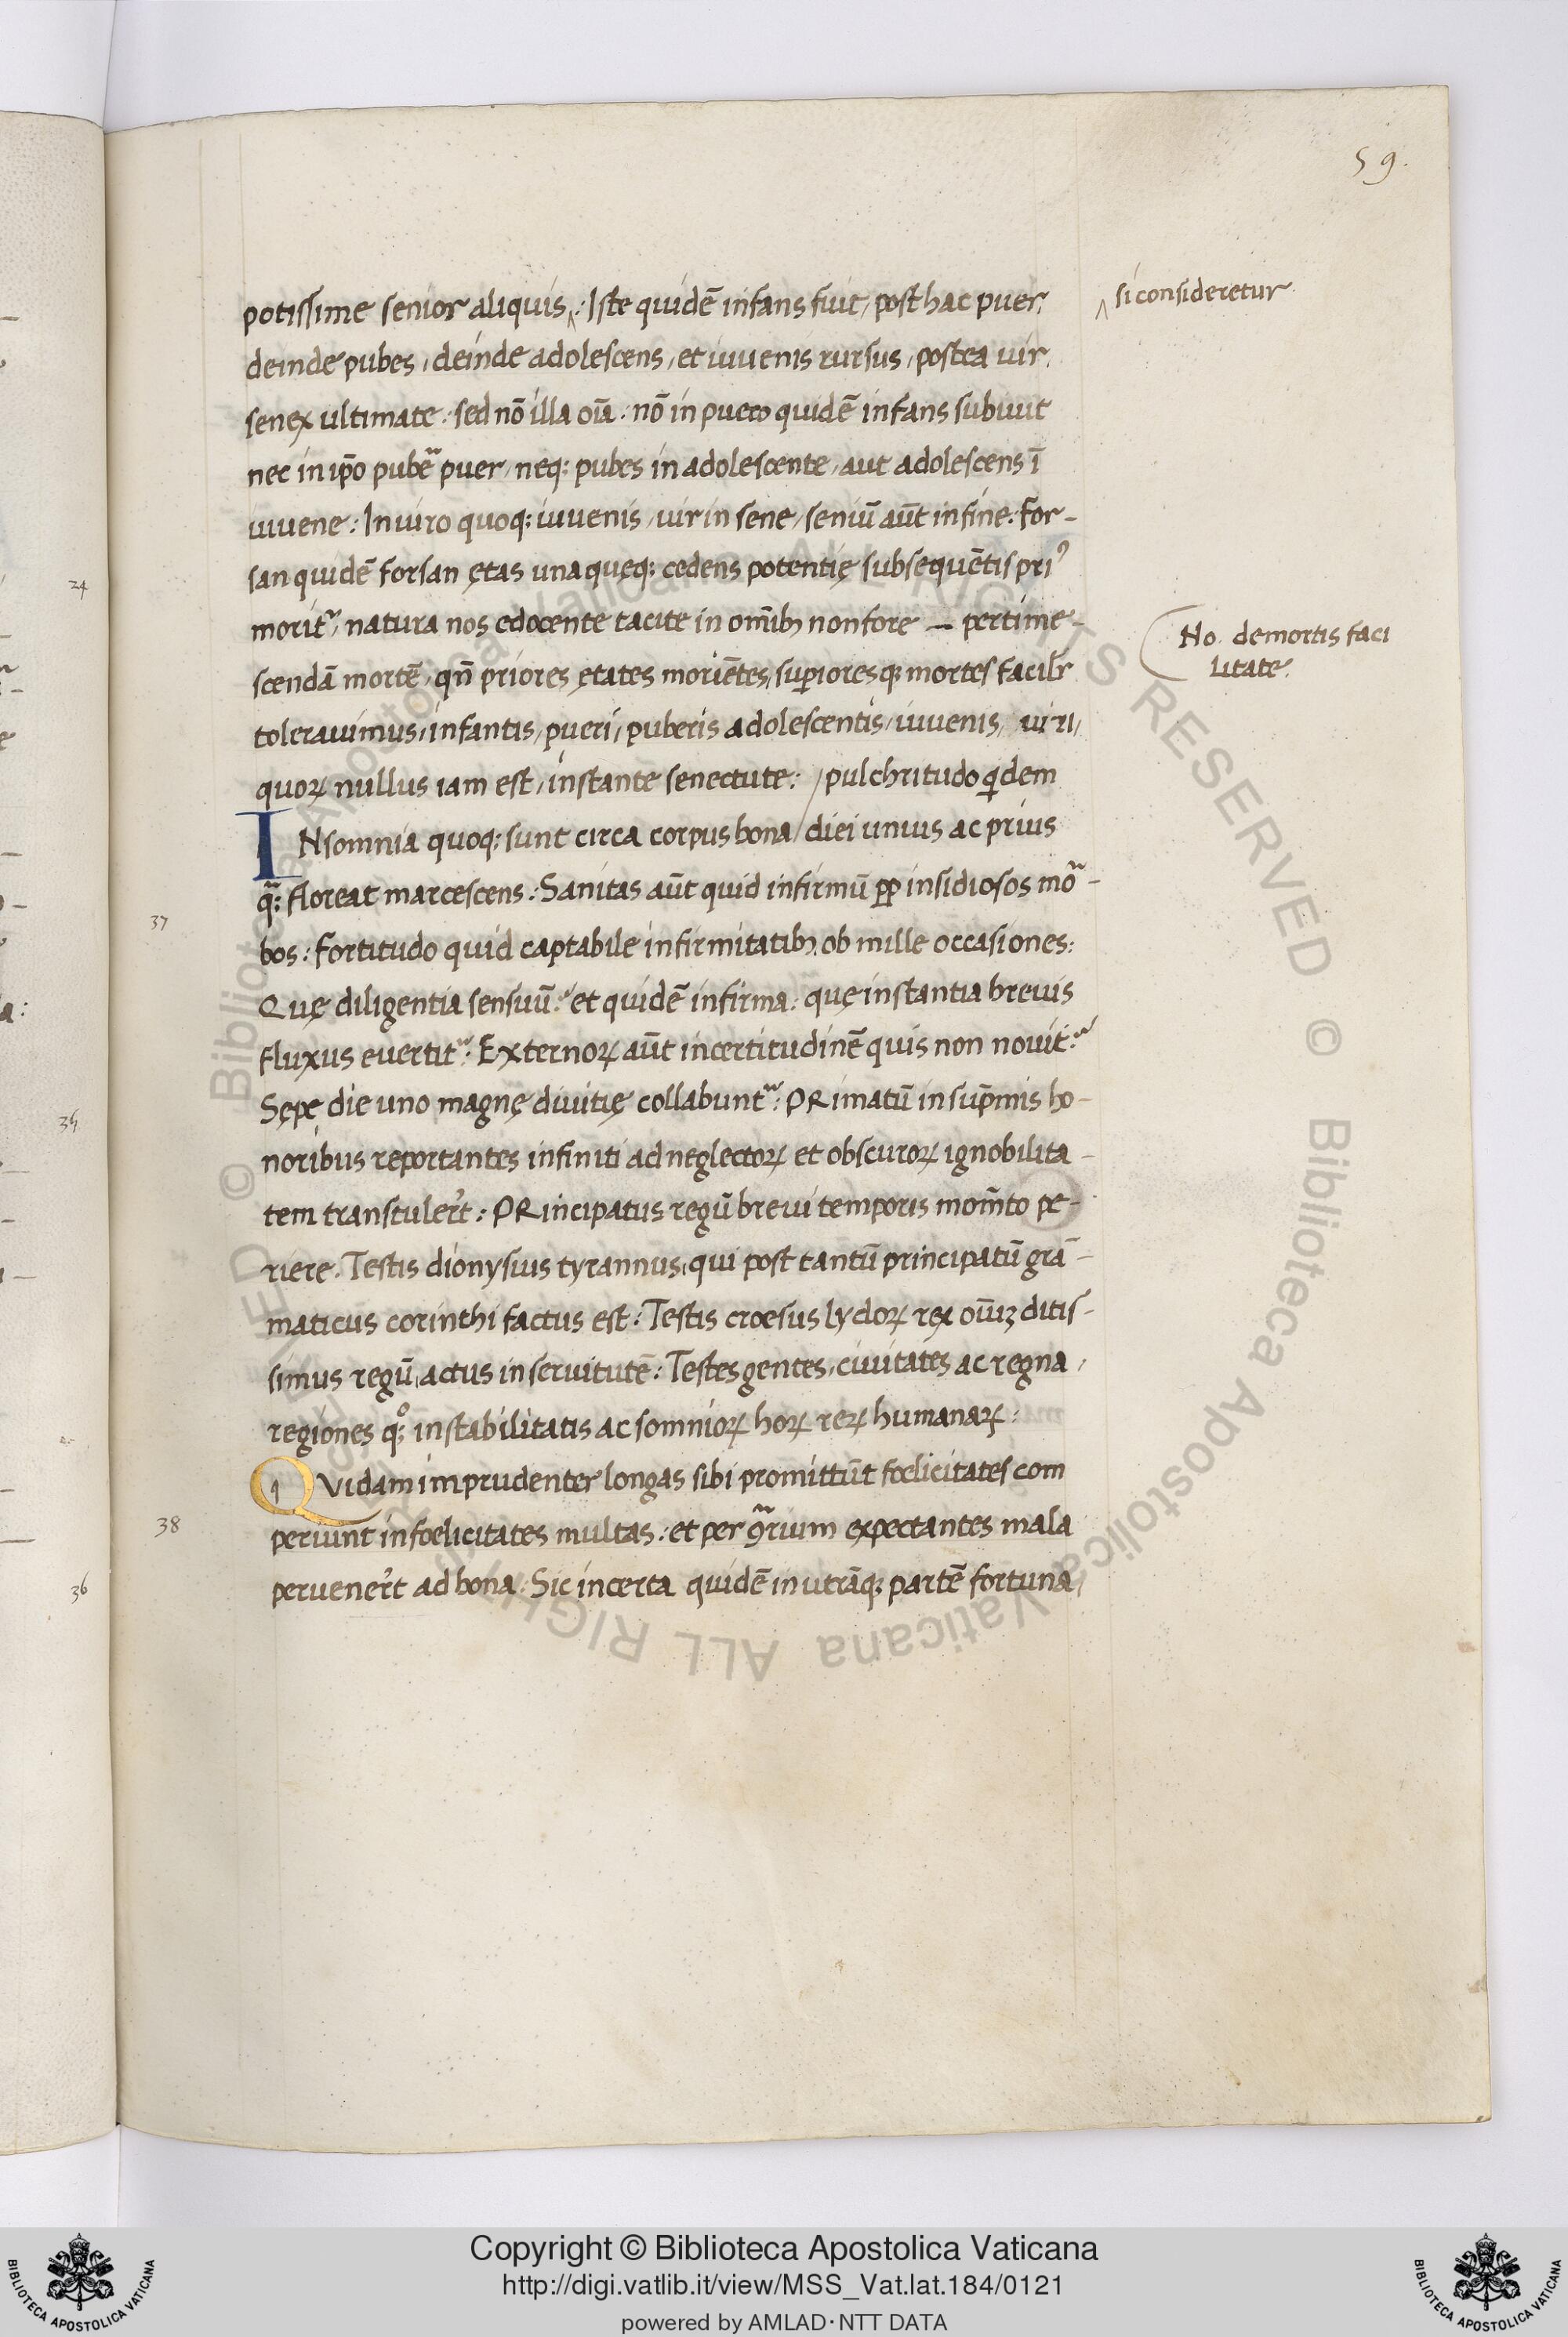 59.
potissime senior aliquis‸: Iste quidē infans fuit, post hac puer,
‸ si consideretur
deinde pubes, deinde adolescens, et iuuenis rursus, postea uir,
senex ultimate: sed nō illa oīa: nō in puero quidē infans subiuit
nec in ip̄o pubē puer, neq; pubes in adolescente, aut adolescens ī
iuuene: In uiro quoq; iuuenis, uir in sene, seniū aūt in fine: for-
san quidē forsan ętas una quęq; cedens potentię subsequētis pri⁹
morit᷑, natura nos edocente tacite in om̄ibꝫ non fore — pertime-
No. de mortis faci
litate.
scendā mortē, qn̄ priores ętates moriētes, suꝑioresqꝫ mortes facilr̄
tolerauimus, infantis, pueri, puberis adolescentis, iuuenis, uiri,
quoꝝ nullus iam est, instante senectute: / pulchritudo qͥdem
INsomnia quoq; sunt circa corpus bona / diei unius ac prius
37
qᷓ; floreat marcescens: Sanitas aūt quid infirmū ꝓp insidiosos mo᷑-
bos: fortitudo quid captabile infirmitatibꝫ ob mille occasiones:
Quę diligentia sensuū: et quidē infirma: quę instantia breuis
fluxus euertit᷑: Externoꝝ aūt incertitudinē quis non nouit:
Sępę die uno magnę diuitię collabunt᷑: PRimatū in sup̄mis ho-
noribus reportantes infiniti ad neglectoꝝ et obscuroꝝ ignobilita-
tem transtuler̄t: PRincipatus regū breui temporis mom̄to pe-
riere. Testis dionysius tyrannus, qui post tantū principatū grā-
maticus corinthi factus est: Testis croesus lydoꝝ rex oīuꝫ ditis-
simus regū, actus in seruitutē: Testes gentes, ciuitates ac regna,
regiones qͦ; instabilitatis ac somnioꝝ hoꝝ reꝝ humanaꝝ:
QVidam imprudenter longas sibi promittūt foelicitates com
38
periunt infoelicitates multas: et per ꝯᷓrium expectantes mala
peruener̄t ad bona: Sic incerta quidē in utrāqꝫ partē fortuna,
24
35
36
Copyright © Biblioteca Apostolica Vaticana
http://digi.vatlib.it/view/MSS_Vat.lat.184/0121
powered by AMLAD·NTT DATA
BIBLIOTECA APOSTOLICA VATICANA
BIBLIOTECA APOSTOLICA VATICANA
© Biblioteca Apostolica Vaticana ALL RIGHTS RESERVED © Biblioteca Apostolica Vaticana ALL RIGHTS RESERVED